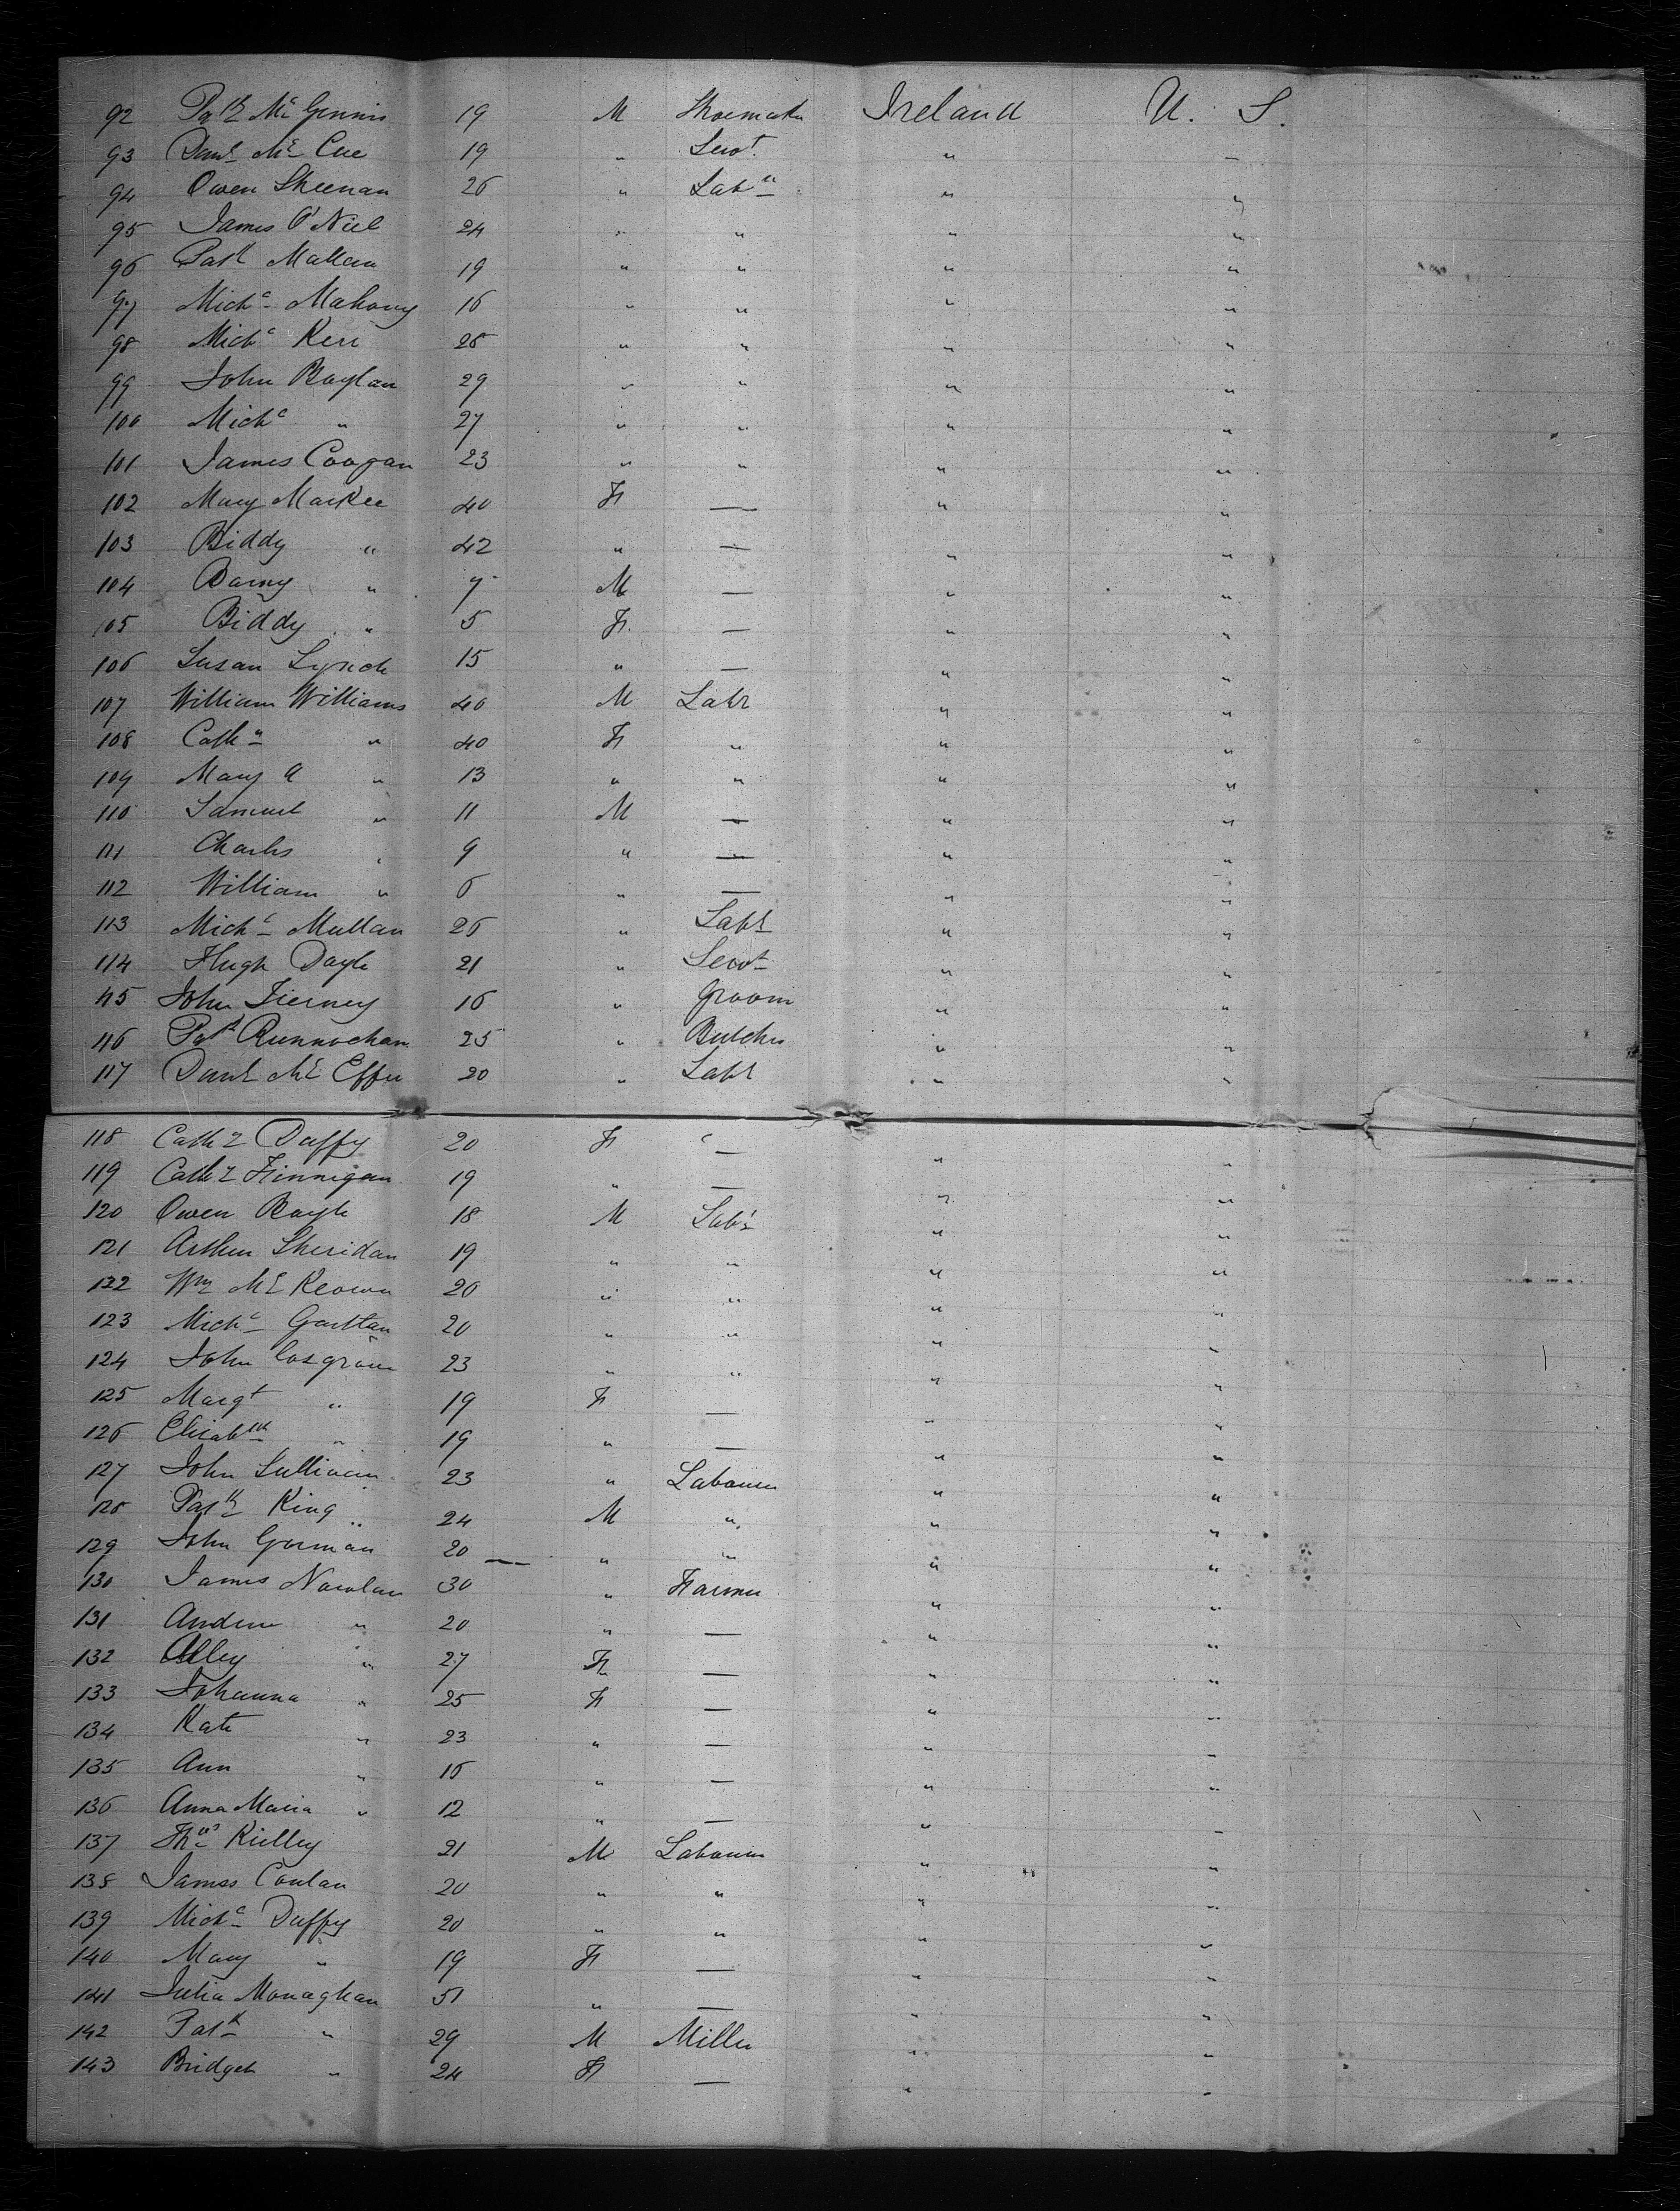 92 Patk McGinnis 19 M Shoemaker Ireland U. S.
93 Danl McCue 19 " Servt. " "
94 Owen Sheenan 26 " Labr " "
95 James O'Niel 24 " " " "
96 Patk Mallan 19 " " " "
97 Michl Mahony 16 " " " "
98 Michl Kerr 26 " " " "
99 John Boylan 29 " " " "
100 Michl " 27 " " " "
101 James Coogan 23 " " " "
102 Mary MacKee 40 F — " "
103 Biddy " 42 " — " "
104 Barny " 7 M — " "
105 Biddy " 5 F — " "
106 Susan Lynch 15 " — " "
107 William Williams 40 M Labr " "
108 Cathn " 40 F " " "
109 Mary A " 13 " " " "
110 Samuel " 11 M — " "
111 Charles " 9 " — " "
112 William " 6 " — " "
113 Michl Mullan 26 " Labr " "
114 Hugh Doyle 21 " Servt " "
115 John Tierney 16 " Groom " "
116 Patk Runnochan 25 " Butcher " "
117 Danl Mc 20 " Labr " "
118 Cathr Duffy 20 F — " "
119 Cathr Finnigan 19 " — " "
120 Owen Boyle 18 M Labr " "
121 Arthur Sheridan 19 " " " "
122 Wm McKeown 20 " " " "
123 Michl Gartlan 20 " " " "
124 John Cosgrove 23 " " " "
125 Margt " 19 F — " "
126 Elizabth " 19 " — " "
127 John Sullivan 23 " Labourer " "
128 Patk King 24 M " " "
129 John Gorman 20 — " " " "
130 James Nowlan 30 " Farmer " "
131 Andrew " 20 " — " "
132 Alley " 27 F — " "
133 Johanna " 25 F — " "
134 Kate " 23 " — " "
135 Ann " 16 " — " "
136 Anna Maria " 12 " — " "
137 Thos Kielley 21 M Labourer " "
138 James Conlan 20 " " " "
139 Michl Duffy 20 " " " "
140 Mary " 19 F — " "
141 Julia Monaghan 51 " — " "
142 Patk " 29 M Miller " "
143 Bridget " 24 F — " "